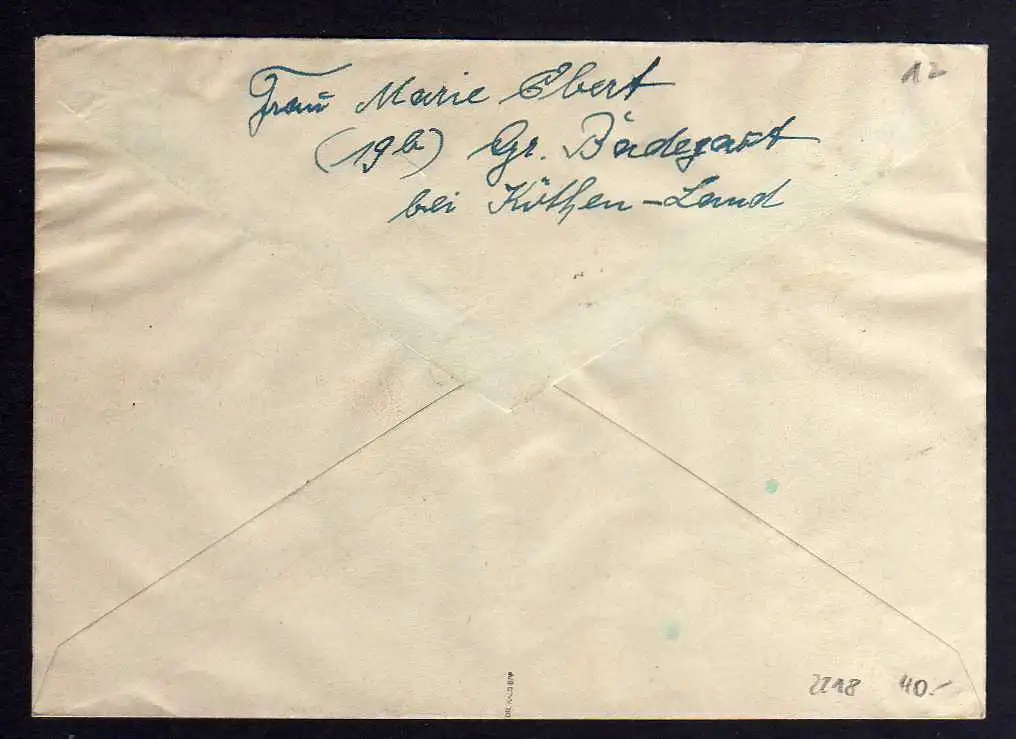 12
Frau Marie Ebert
(19b) Gr. Badegast
bei Köthen-Land
2218 40.-